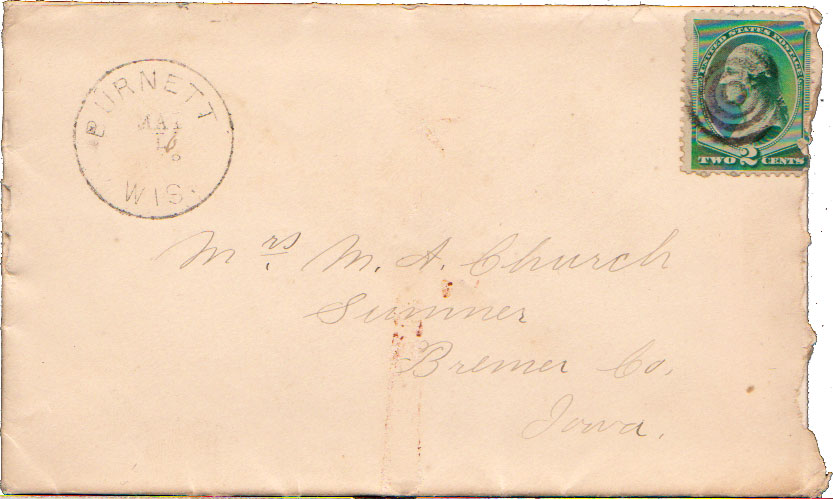 BURNETT
MAY
16
WIS.
UNITED STATES POSTAGE
TWO 2 CENTS
Mrs M. A. Church
Sumner
Bremer Co.
Iowa.